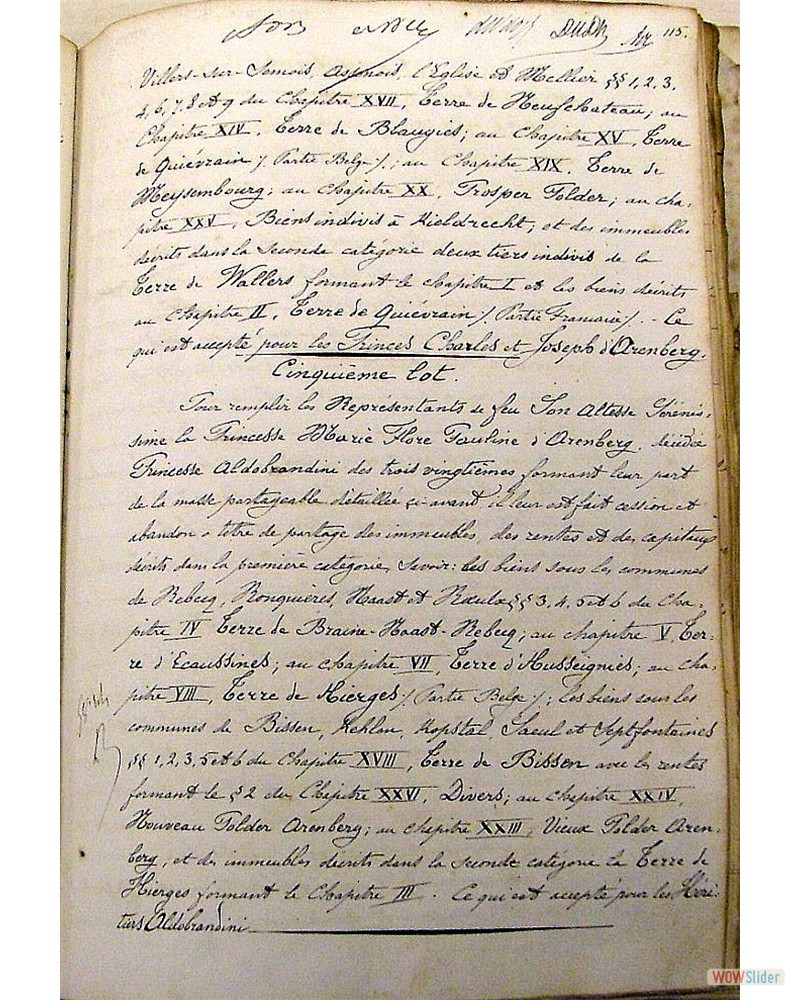 115.
Villers-sur-Semois, Assenois, l'Eglise et Mellier §§ 1, 2, 3,
4, 6, 7, 8 et 9 du Chapitre XVII, Terre de Neufchateau; au
Chapitre XIV, Terre de Blaugies; au Chapitre XV, Terre
de Quiévrain /. Partie Belge /.; au Chapitre XIX, Terre de
Meysembourg; au chapitre XX, Prosper Polder; au cha-
pitre XXV, Biens indivis à Kieldrecht; et des immeubles
décrits dans la seconde catégorie deux tiers indivis de la
Terre de Wallers formant le chapitre I et les biens décrits
au Chapitre II, Terre de Quiévrain /. Partie Française /. - Ce
qui est accepté pour les Princes Charles et Joseph d'Arenberg.
Cinquième lot.
Pour remplir les Représentants de feu Son Altesse Sérénis-
sime la Princesse Marie Flore Pauline d'Arenberg, décédée
Princesse Aldobrandini des trois vingtièmes formant leur part
de la masse partageable détaillée ci-avant, il leur est fait cession et
abandon à titre de partage des immeubles, des rentes et des capitaux
décrits dans la première catégorie, savoir: les biens sous les communes
de Rebecq, Ronquières, Naast et Rœulx §§ 3, 4, 5 et 6 du Cha-
pitre IV Terre de Braine-Naast-Rebecq; au chapitre V, Ter-
re d'Ecaussines; au chapitre VII, Terre d'Husseignies; au cha-
pitre VIII, Terre de Hierges /. Partie Belge /.; les biens sous les
communes de Bissen, Kehlen, Kopstal, Saeul et Septfontaines
§§ 1, 2, 3, 5 et 6 du Chapitre XVIII, Terre de Bissen avec les rentes
formant le § 2 du Chapitre XXVI, Divers; au chapitre XXIV,
Nouveau Polder Arenberg; au chapitre XXIII, Vieux Polder Aren-
berg, et des immeubles décrits dans la seconde catégorie la Terre de
Hierges formant le Chapitre III. - Ce qui est accepté pour les Héri-
tiers Aldobrandini
WOWSlider